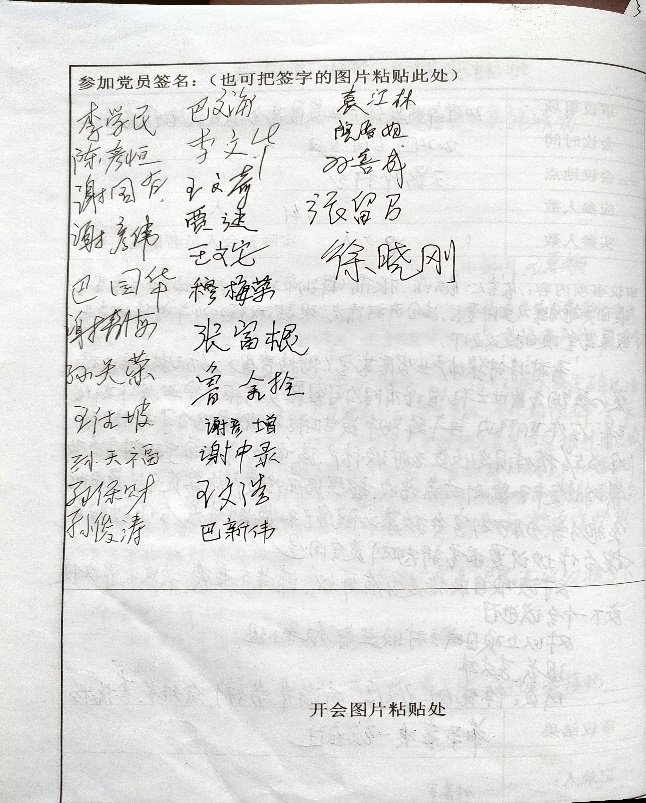 参加党员签名：（也可把签字的图片粘贴此处）
李学民 巴文海 袁江林
陈彦恒 李文华
谢国有 王文奇 孙喜成
谢彦伟 贾进 张留
王文宅 徐晓刚
巴国华 穆梅荣
谢 张富棍
孙关荣 鲁金拴
王仕坡 谢彦增
孙天福 谢中录
孙保财 王文浩
孙俊涛 巴新伟
开会图片粘贴处